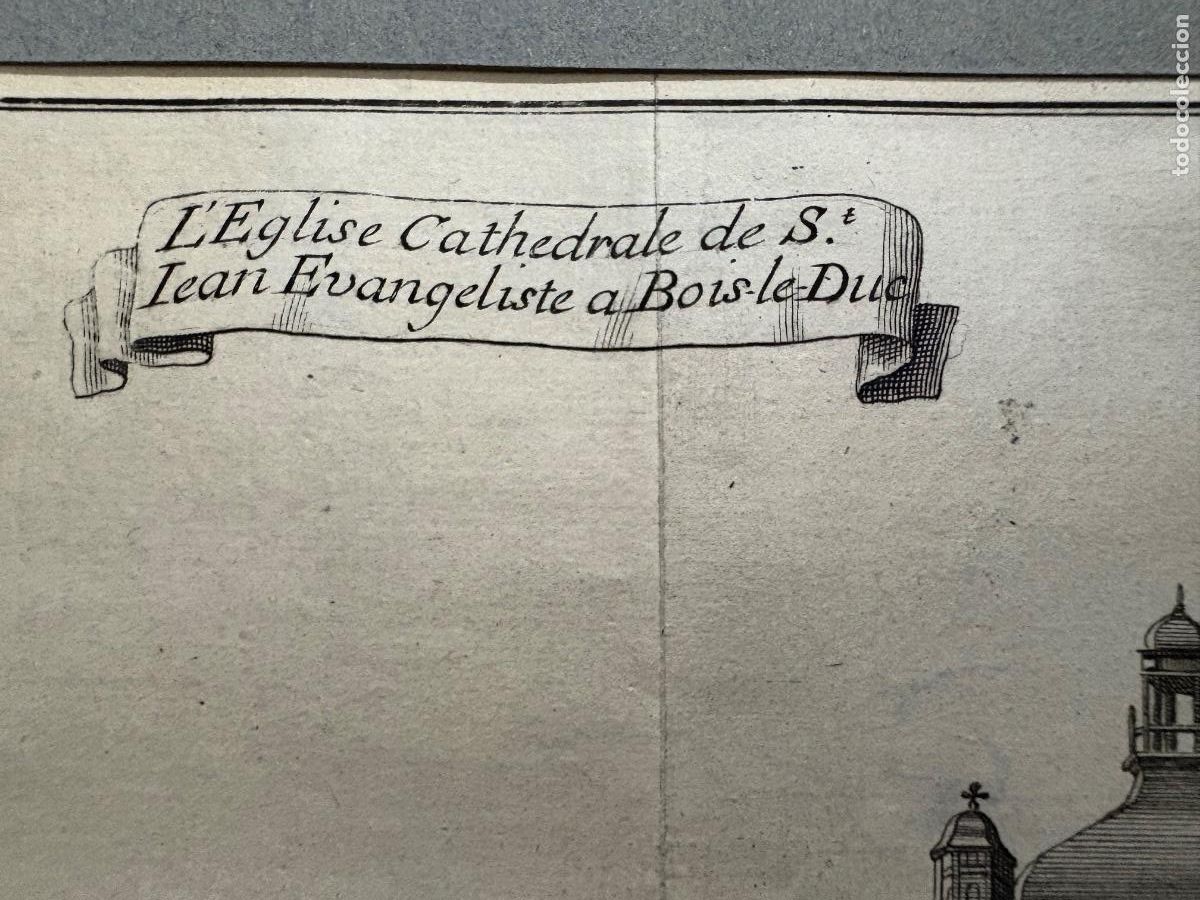 L'Eglise Cathedrale de S.t
Iean Evangeliste a Bois-le-Duc
todocoleccion